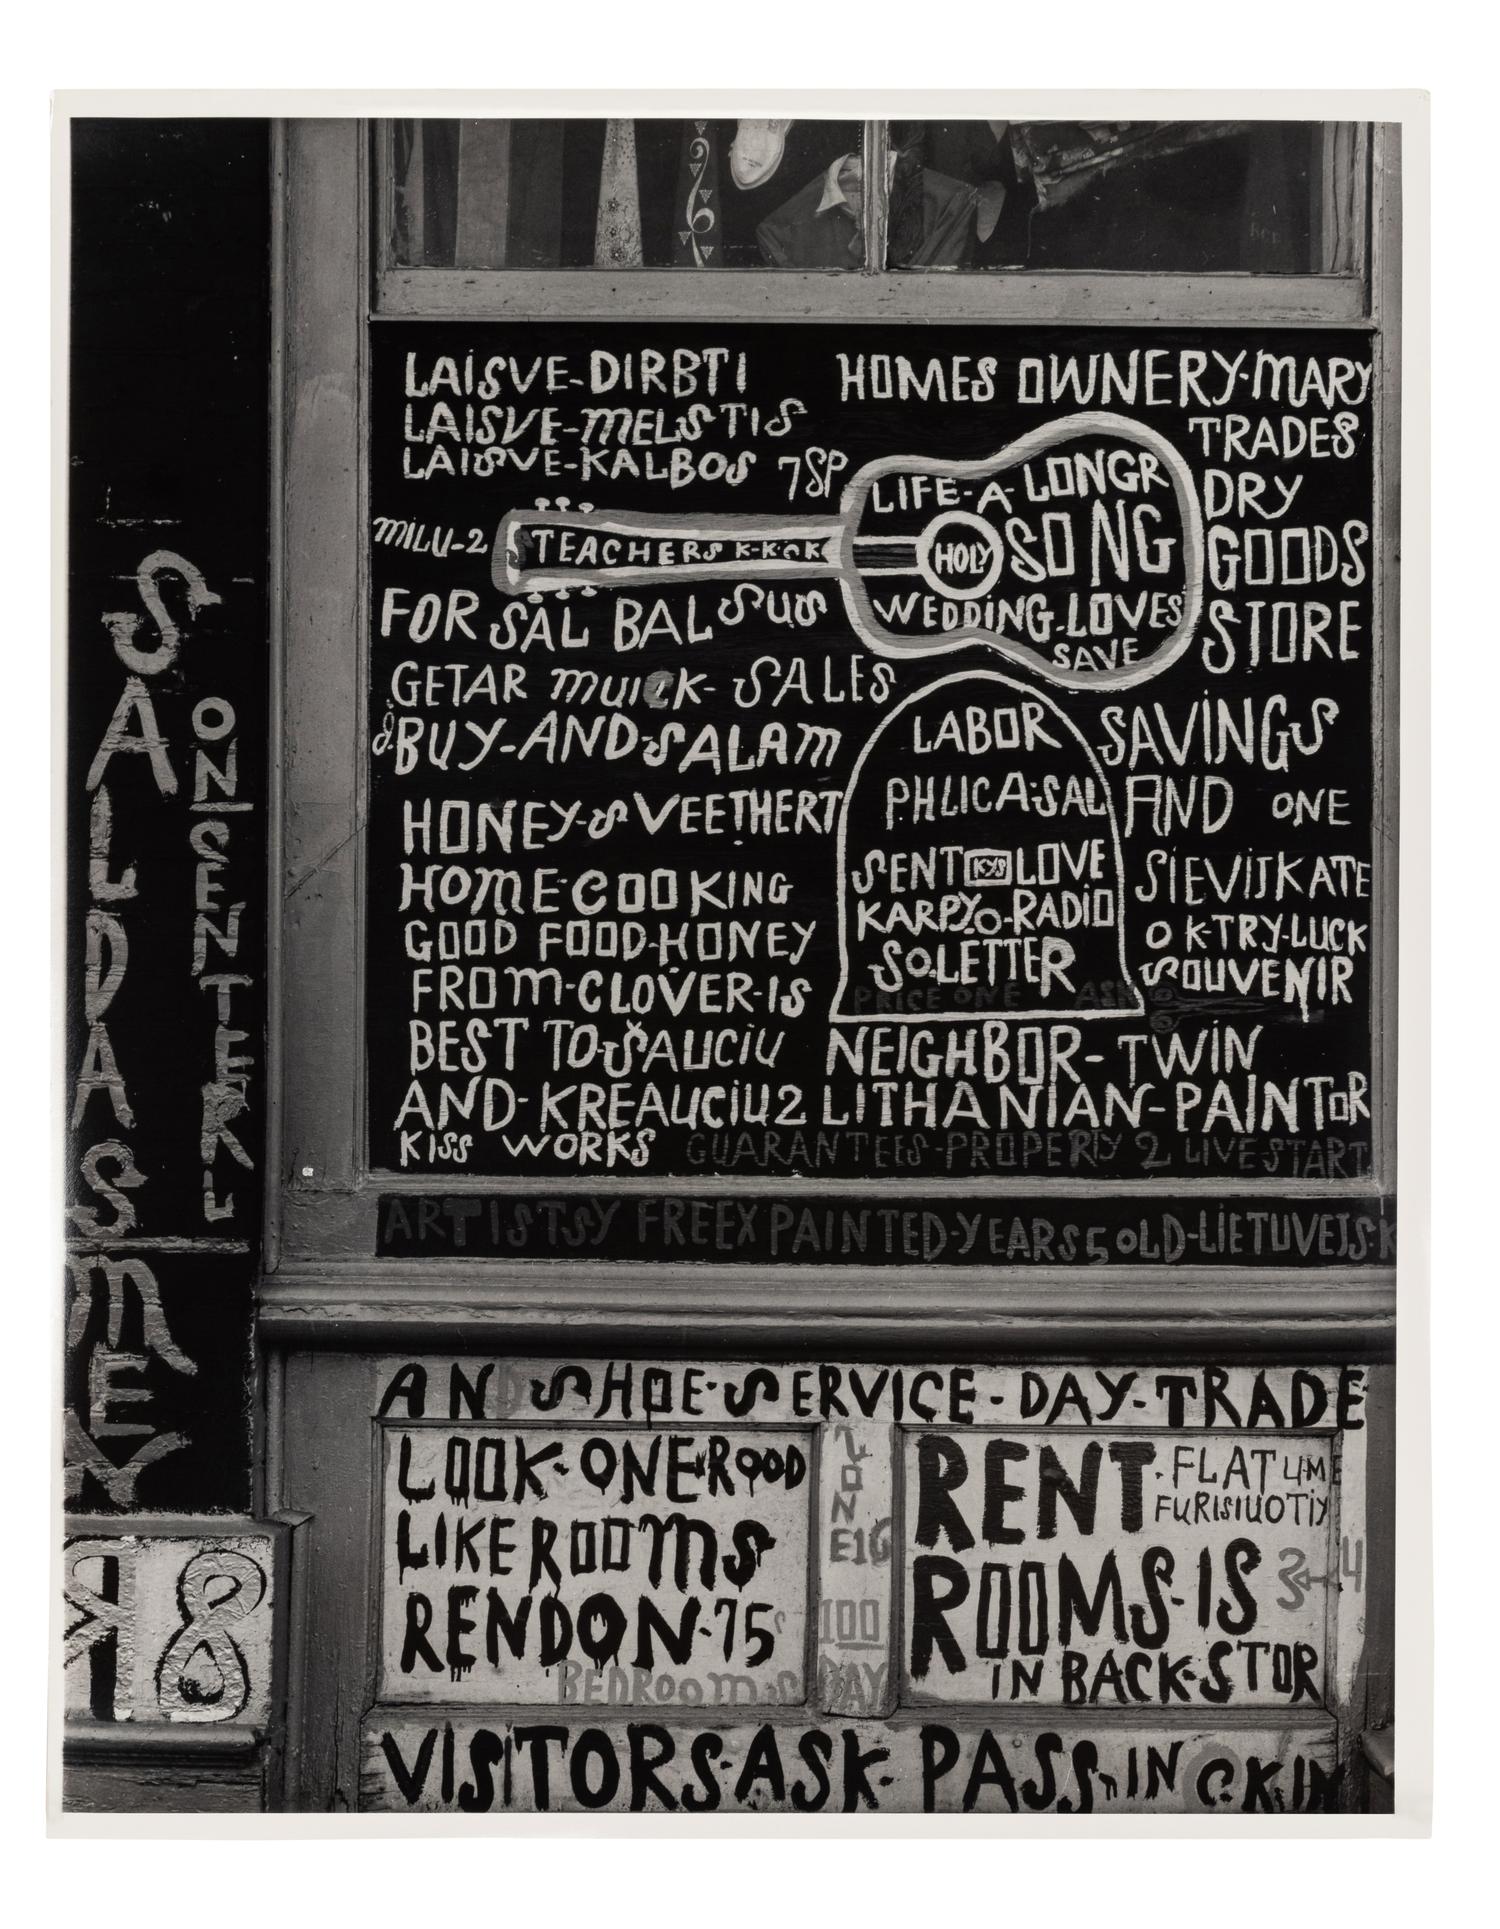 LAISVE-DIRBTI
LAISVE-MELSTIS
LAISVE-KALBOS 7SP
MILU-2
TEACHERS K-K-OK
FOR SAL BALSUS
GETAR MUICK- SALES
& BUY-AND-SALAM
HONEY-SVEETHERT
HOME-COOKING
GOOD FOOD-HONEY
FROM-CLOVER-IS
BEST TO-ŠAUCIU
AND-KREAUCIU2
KISS WORKS
HOMES OWNERY-MARY
TRADES
DRY
GOODS
STORE
LIFE-A-LONGR
HOLY SONG
WEDDING-LOVES
SAVE
LABOR
PHLICA-SAL
SENT KYS LOVE
KARPY.O-RADIO
SO.LETTER
PRICE ONE ASK
SAVINGS
AND ONE
SIEVIJKATE
OK-TRY-LUCK
SOUVENIR
NEIGHBOR-TWIN
LITHANIAN-PAINTOR
GUARANTEES-PROPERTY 2 LIVE-START
ARTISTSY FREEX PAINTED-YEARS 5 OLD-LIETUVEJS-K
SALDAS
MEY
ON SENTERU
AND SHOE-SERVICE-DAY-TRADE
LOOK-ONE-ROOD
LIKE ROOMS
RENDON-75
BEDROOMS
ZONE16
100
DAY
RENT-FLAT UME
FURISIUOTIY
ROOMS-IS 3 4
IN BACK-STOR
8
VISITORS-ASK-PASS-IN